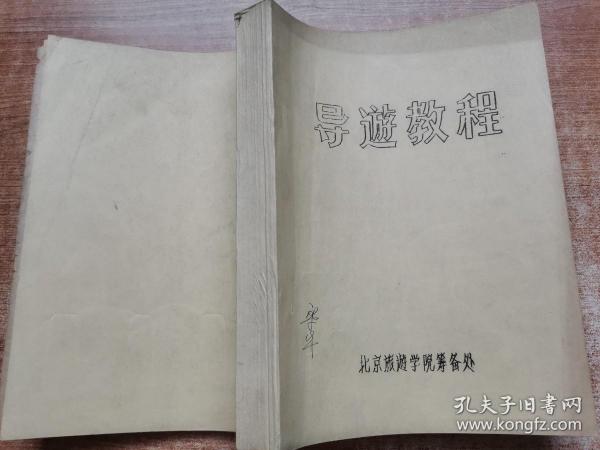 导遊教程
北京旅遊学院筹备处
孔夫子旧书网
www.kongfz.com